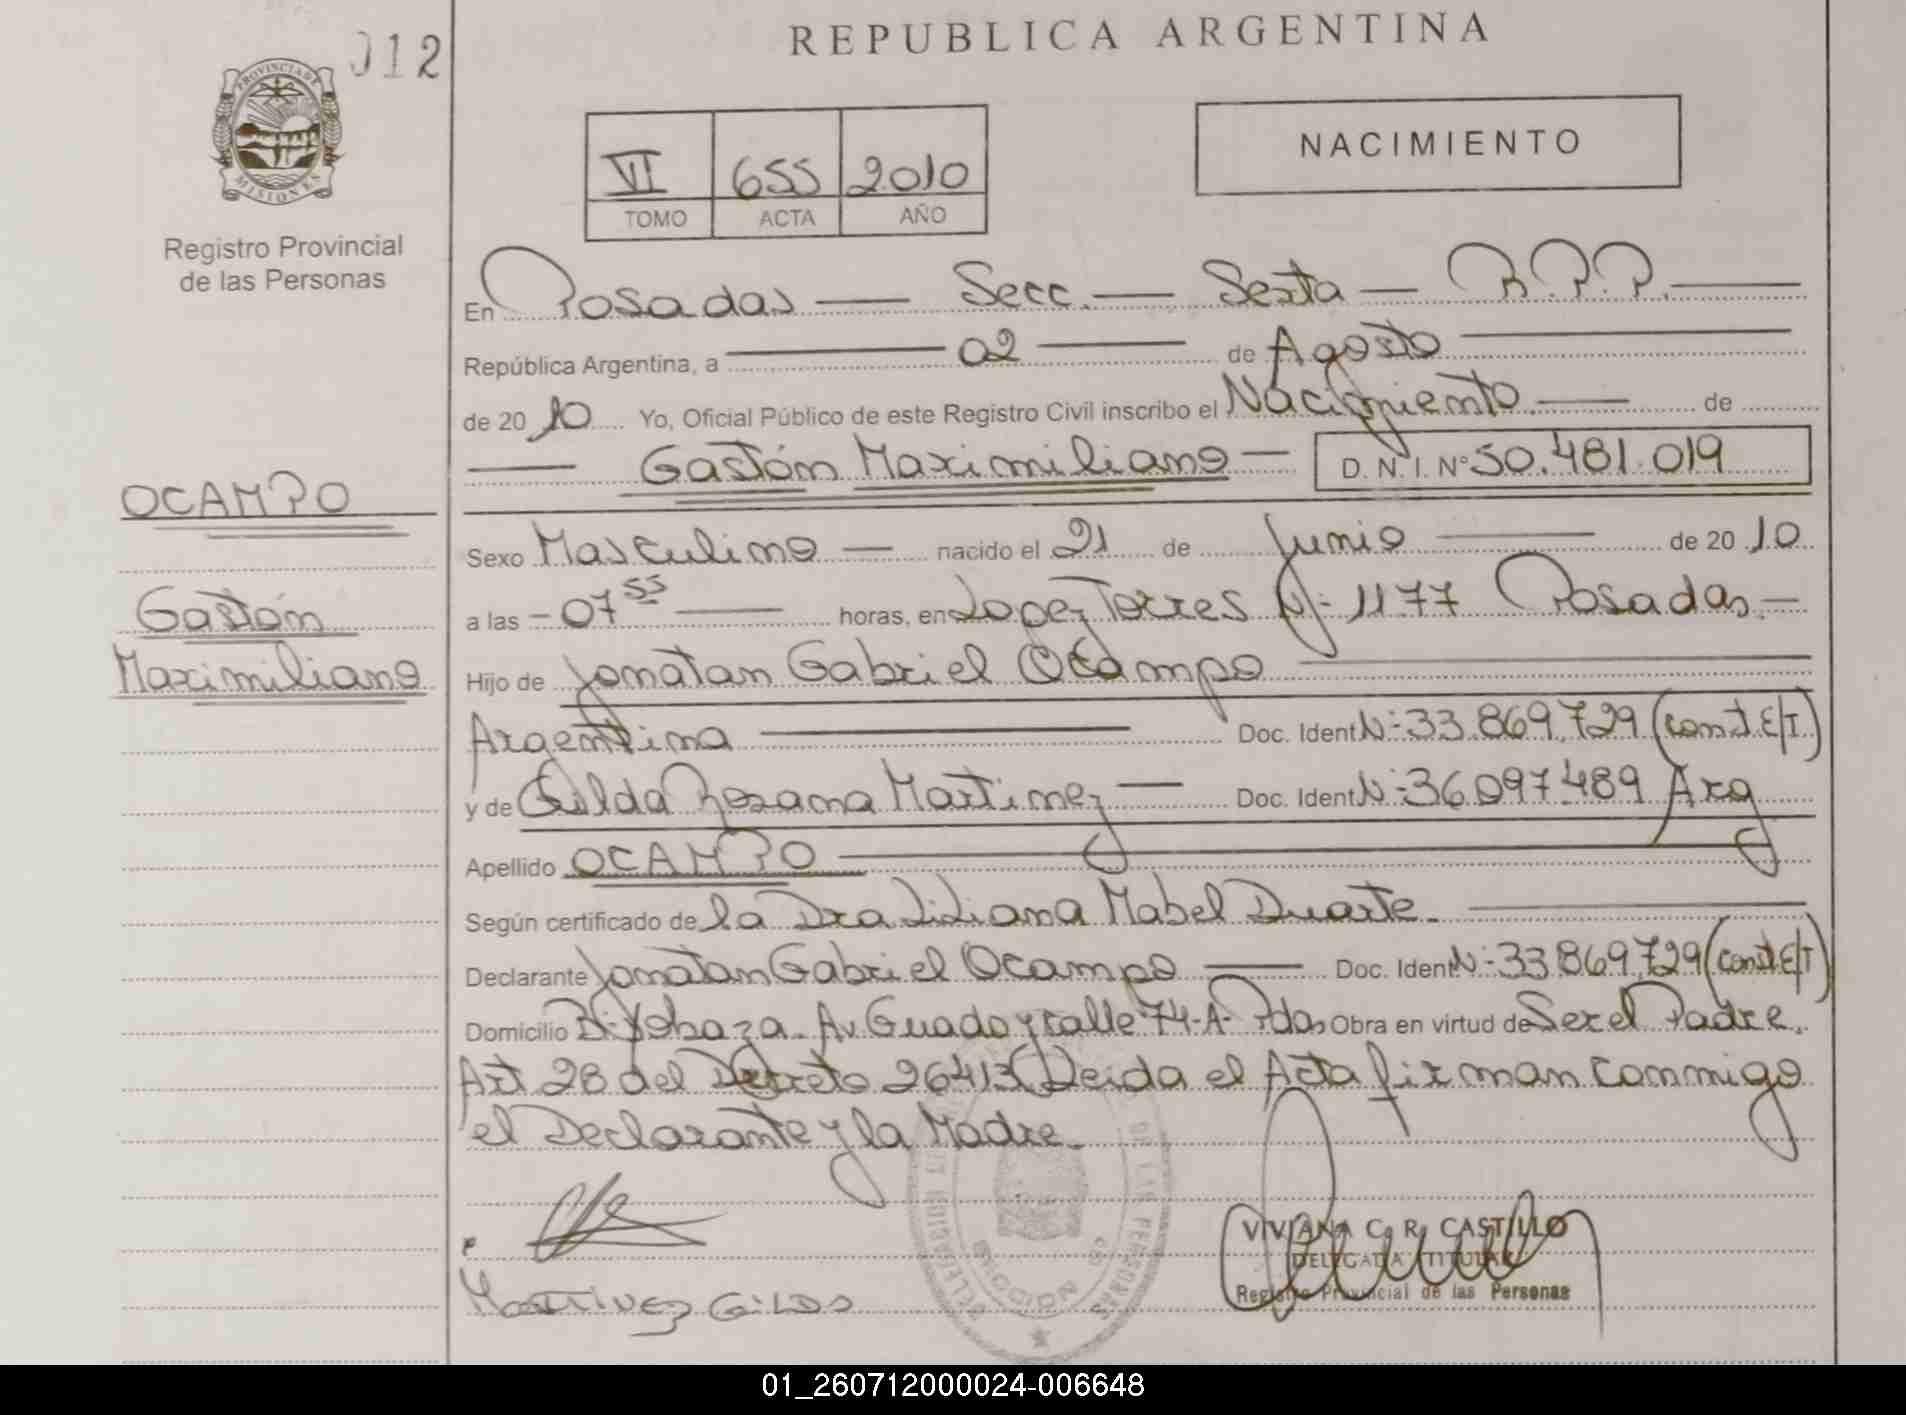 012
REPUBLICA ARGENTINA
PROVINCIA DE MISIONES
Registro Provincial
de las Personas
VI 655 2010
TOMO ACTA AÑO
NACIMIENTO
En Posadas — Secc. — Sexta — R.P.P. —
República Argentina, a — 02 — de Agosto —
de 2010 Yo, Oficial Público de este Registro Civil inscribo el Nacimiento. — de
— Gastón Maximiliano — D.N.I. Nº 50.481.019
OCAMPO
Gastón
Maximiliano
Sexo Masculino — nacido el 21 de Junio — de 2010
a las - 07 55 — horas, en Lopez Torres Nº 1177 Posadas. —
Hijo de Jonatan Gabriel Ocampo —
Argentina — Doc. Ident Nº 33.869.729 (const. E/T)
y de Gilda Rosana Martinez — Doc. Ident Nº 36.097.489 Arg
Apellido OCAMPO —
Según certificado de la Dra Liliana Mabel Duarte. —
Declarante Jonatan Gabriel Ocampo — Doc. Ident Nº 33.869.729 (const E/T)
Domicilio Bº Yohaza. Av Guado y calle 74-A- Pdas Obra en virtud de Ser el Padre.
Art 28 del Decreto 26413 Leida el Acta firman conmigo
el Declarante y la Madre.
VIVIANA C. R. CASTILLO
DELEGADA TITULAR
Registro Provincial de las Personas
MARTINEZ GILDA
DE LAS PERSONAS
SECCION 6ª
01_260712000024-006648